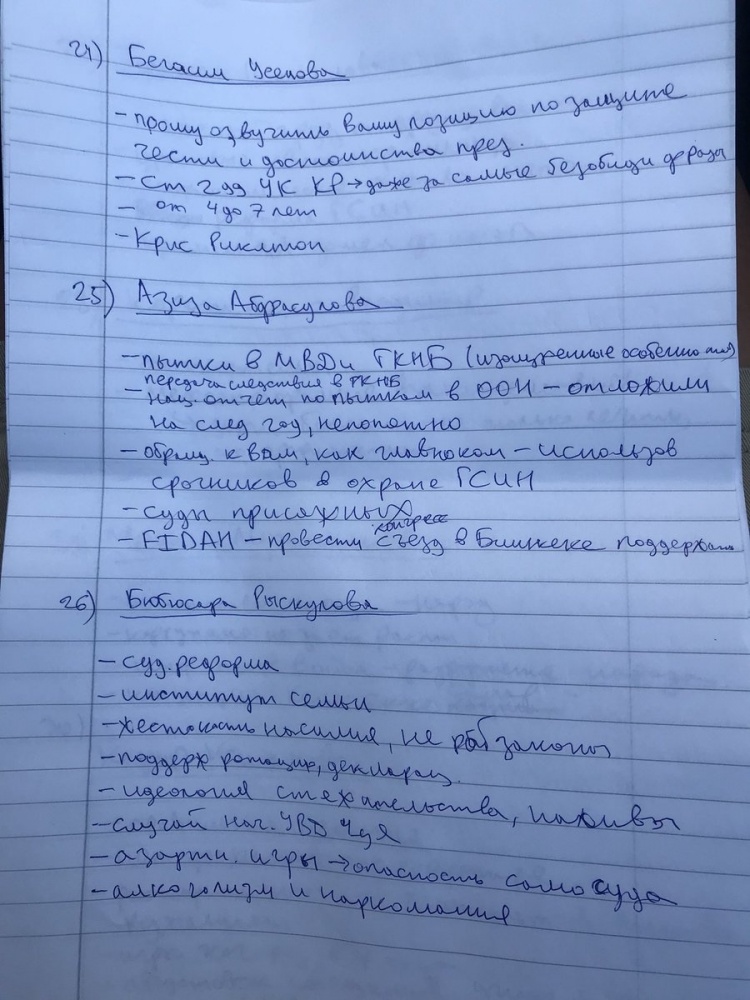 24) Бегаим Усенова
- прошу озвучить Вашу позицию по защите
чести и достоинства през.
- Ст УК КР → даже за самые безобидн фразы
- от 4 до 7 лет
- Крис Риклтон
25) Азиза Абдрасулова
- пытки в МВД и ГКНБ (изощренные особенно
передача следствия в ГКНБ
- нац. отчет по пыткам в ООН - отложили
на след год, непонятно
- обращ. к Вам, как главноком - использов
срочников в охране ГСИН
- суды присяжных
конгресс
- FIDAH - провести съезд в Бишкеке поддержать
26) Бюбюсара Рыскулова
- суд. реформа
- институт семьи
- жестокость насилия, не раб законы
- поддерж ротацию, декларац.
- идеология стяжательства, наживы
- случай нач. УВД
- азартн. игры → опасность самосуда
- алкоголизм и наркомания